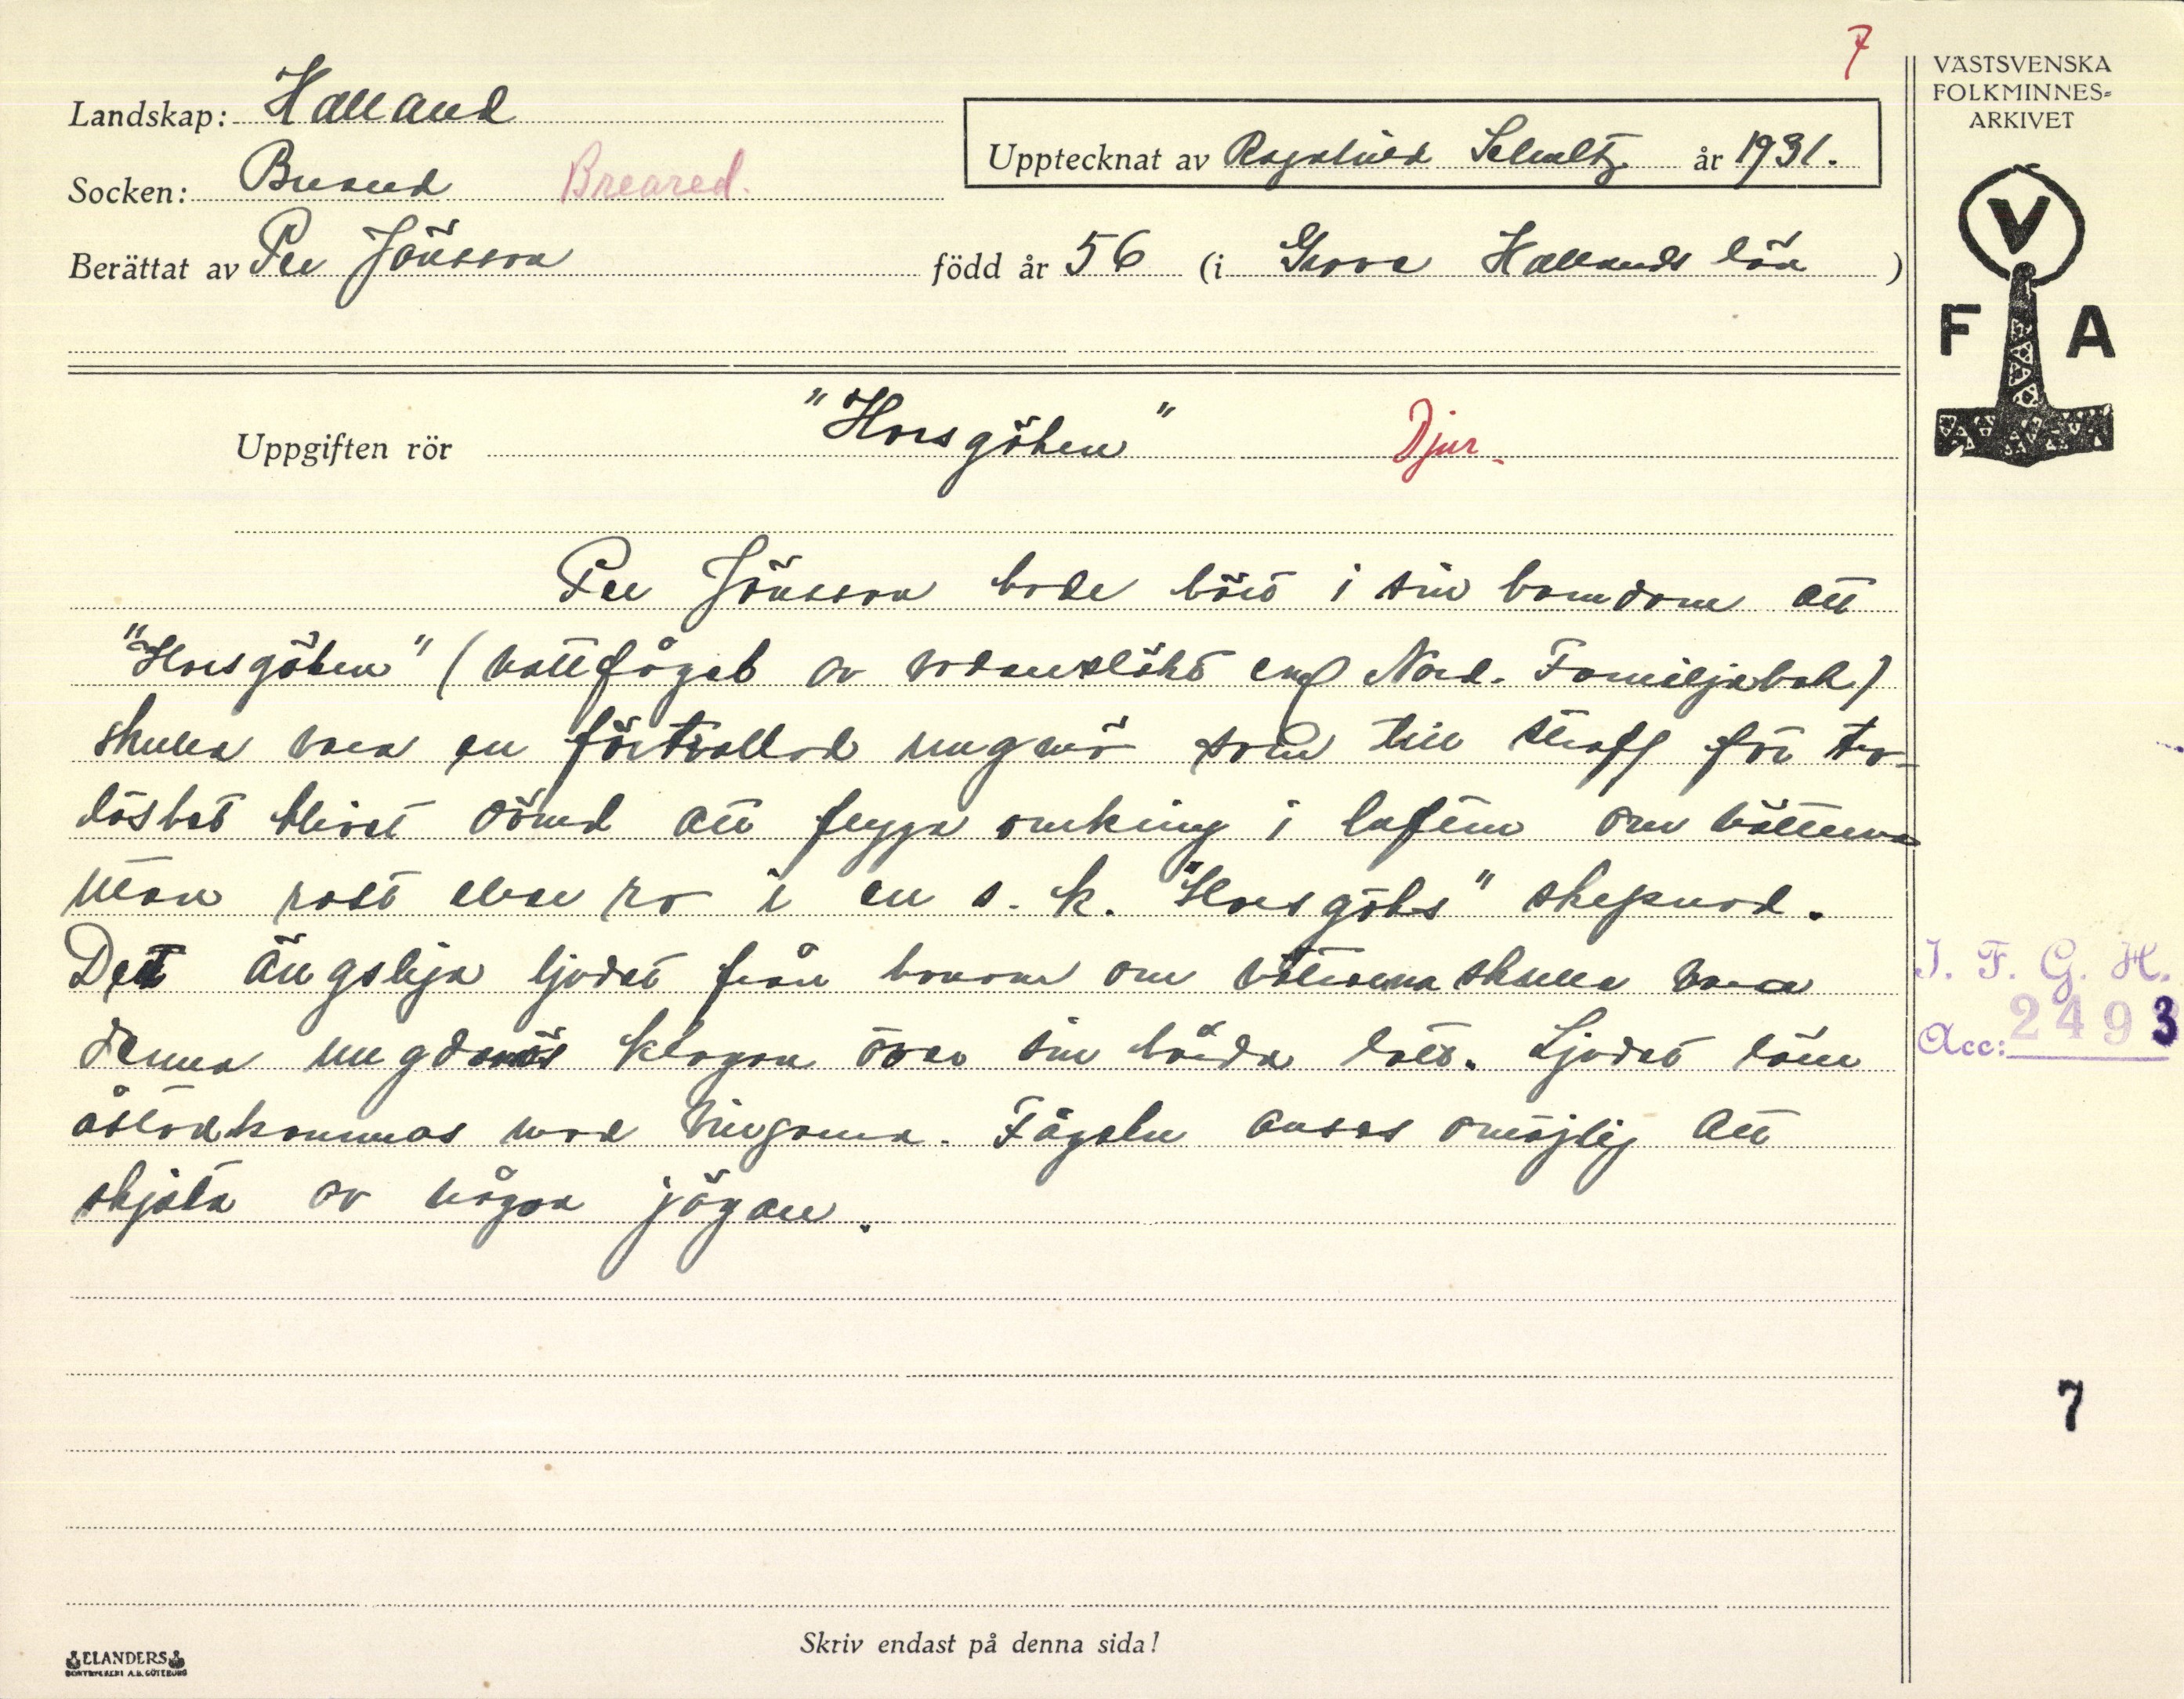 7
VÄSTSVENSKA
FOLKMINNES=
ARKIVET
Landskap: Halland
Socken: Breared Breared.
Upptecknat av Ragnhild Schultz år 1931.
Berättat av Per Jönsson född år 56 (i Hallands län)
V
F A
Uppgiften rör "Horsgöken" Djur.
Per Jönsson hade hört i sin barndom att
"Horsgöken" (nattfågel av vadaresläkt enl Nord. Familjebok)
skulle vara en förtrollad ungmö som till straff för tro-
löshet blivit dömd att flyga omkring i luften om nätterna
utan rast eller ro i en s. k. "Horsgöks" skepnad.
Det ängsliga ljudet från honom om nätterna skulle vara
denna ungdomös klagan över sin hårda lott. Ljudet lär
åstadkommas med vingarna. Fågeln anses omöjlig att
skjuta av någon jägare.
I. F. G. H.
Acc: 2493
7
Skriv endast på denna sida!
ELANDERS
BOKTRYCKERI A.B. GÖTEBORG